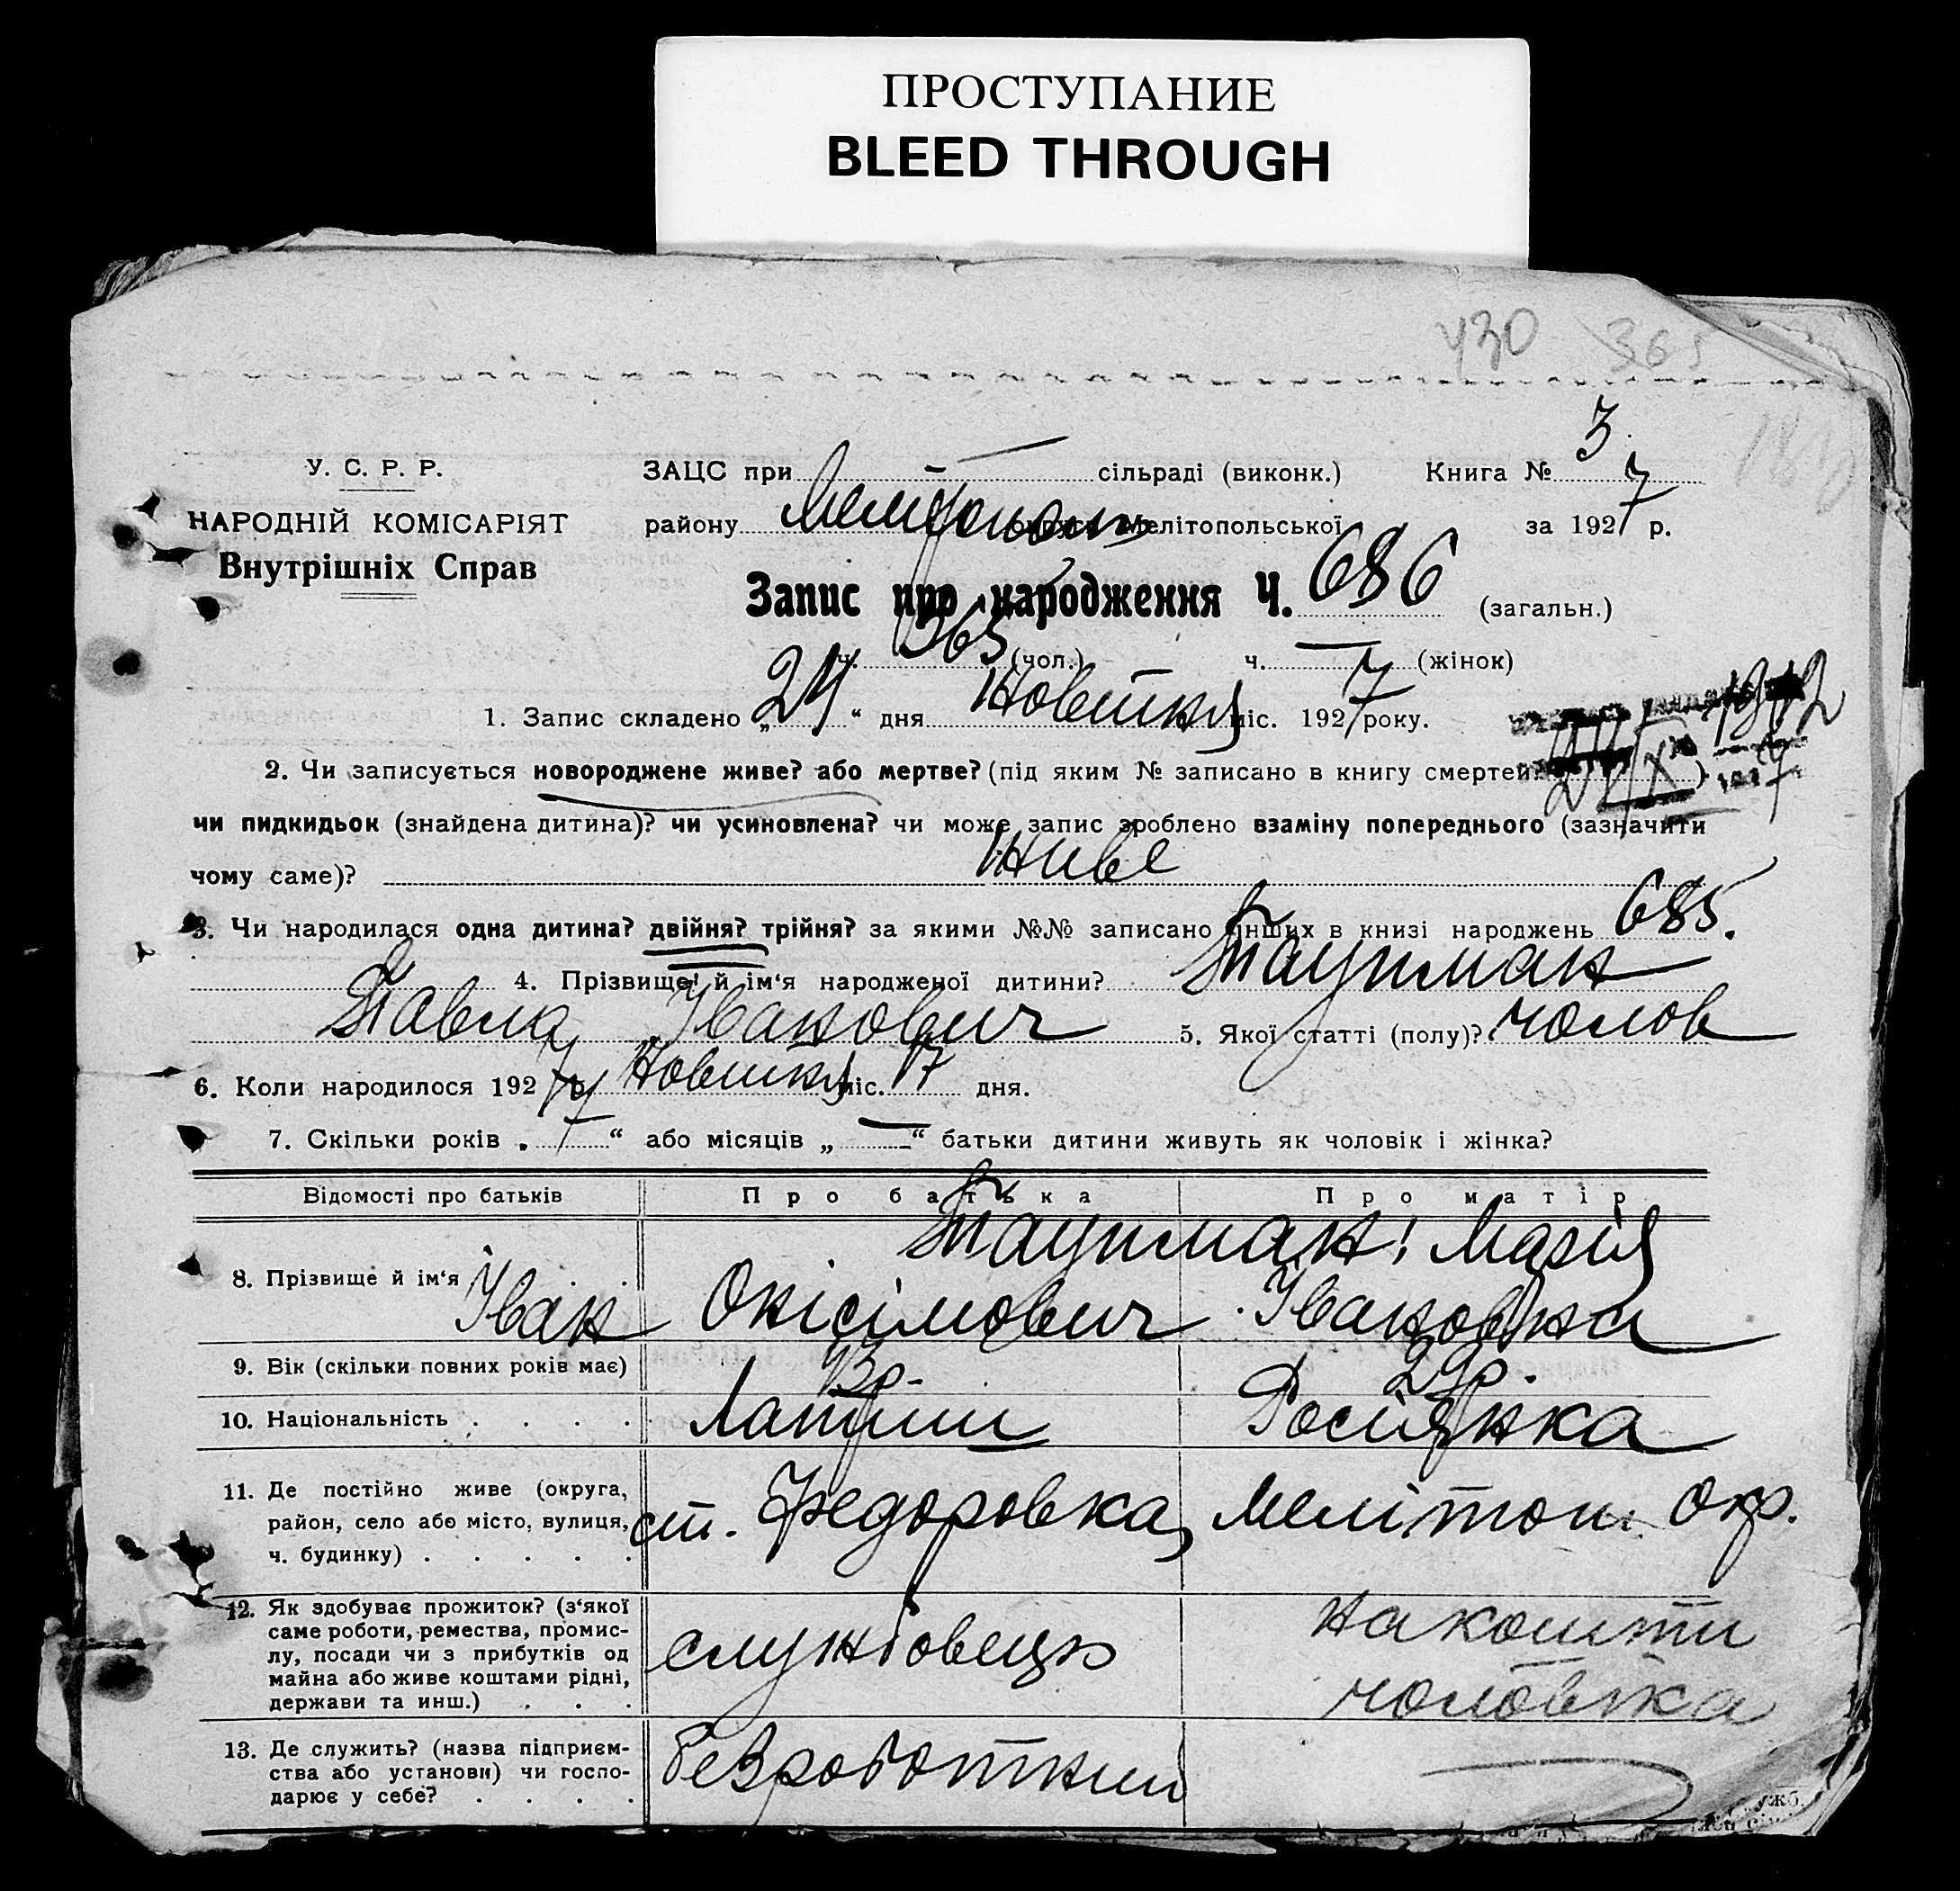 ПРОСТУПАНИЕ
BLEED THROUGH
430 365
У. С. Р. Р.
НАРОДНІЙ КОМІСАРІЯТ
Внутрішніх Справ
ЗАЦС при сільраді (виконк.) Книга № 3
району Мелітополь округи Мелітопольської за 1927 р.
Запис про народження Ч. 686 (загальн.)
ч. 365 (чол.) ч. — (жінок)
1. Запис складено „24“ дня Новешкя міс. 1927 року.
2. Чи записується новороджене живе? або мертве? (під яким № записано в книгу смертей? )
чи пидкидьок (знайдена дитина)? чи усиновлена? чи може запис зроблено взаміну попереднього (зазначити
чому саме)? Живе
3. Чи народилася одна дитина? двійня? трійня? за якими №№ записано інших в книзі народжень 685.
4. Прізвище й ім‘я народженої дитини? Таупман
Павла Іванович 5. Якої статті (полу)? чолов
6. Коли народилося 1927 р. Новешкя міс. 17 дня.
7. Скільки років „ “ або місяців „ — “ батьки дитини живуть як чоловік і жінка?
Відомості про батьків Про батька Про матір
8. Прізвище й ім‘я Таупман! Марія
Іван Онісімович Івановна
9. Вік (скільки повних років має) 29р.
10. Національність . . . . Латиш Росіянка
11. Де постійно живе (округа, район, село або місто, вулиця, ч. будинку) . . . . . ст. Федоровка, Мелітоп. Окр.
12. Як здобуває прожиток? (з‘якої саме роботи, ремества, промис-
лу, посади чи з прибутків од
майна або живе коштами рідні,
держави та инш.) . . . службовець на кошти чоловіка
13. Де служить? (назва підприєм-
ства або установи) чи госпо-
дарює у себе? . . . . безроботний